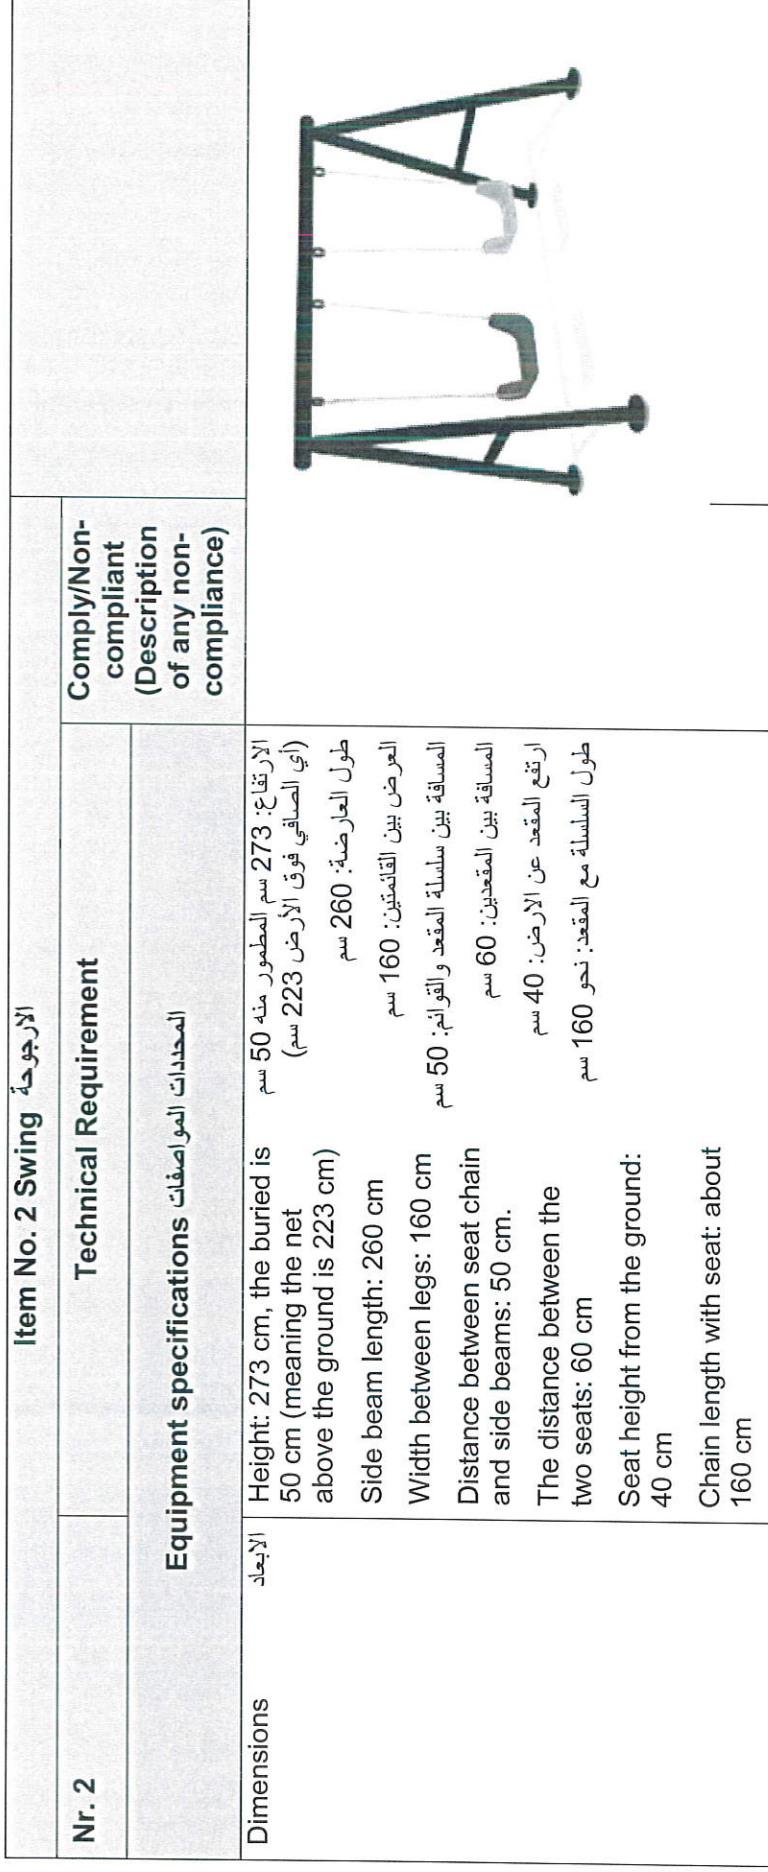 Item No. 2 Swing الارجوحة
Nr. 2
Technical Requirement
Comply/Non-
compliant
(Description
of any non-
compliance)
Equipment specifications المحددات المواصفات
Dimensions
الابعاد
Height: 273 cm, the buried is
50 cm (meaning the net
above the ground is 223 cm)
Side beam length: 260 cm
Width between legs: 160 cm
Distance between seat chain
and side beams: 50 cm.
The distance between the
two seats: 60 cm
Seat height from the ground:
40 cm
Chain length with seat: about
160 cm
الارتفاع: 273 سم المطمور منه 50 سم
(أي الصافي فوق الأرض 223 سم)
طول العارضة: 260 سم
العرض بين القائمتين: 160 سم
المسافة بين سلسلة المقعد والقوائم: 50 سم
المسافة بين المقعدين: 60 سم
ارتفع المقعد عن الارض: 40 سم
طول السلسلة مع المقعد: نحو 160 سم